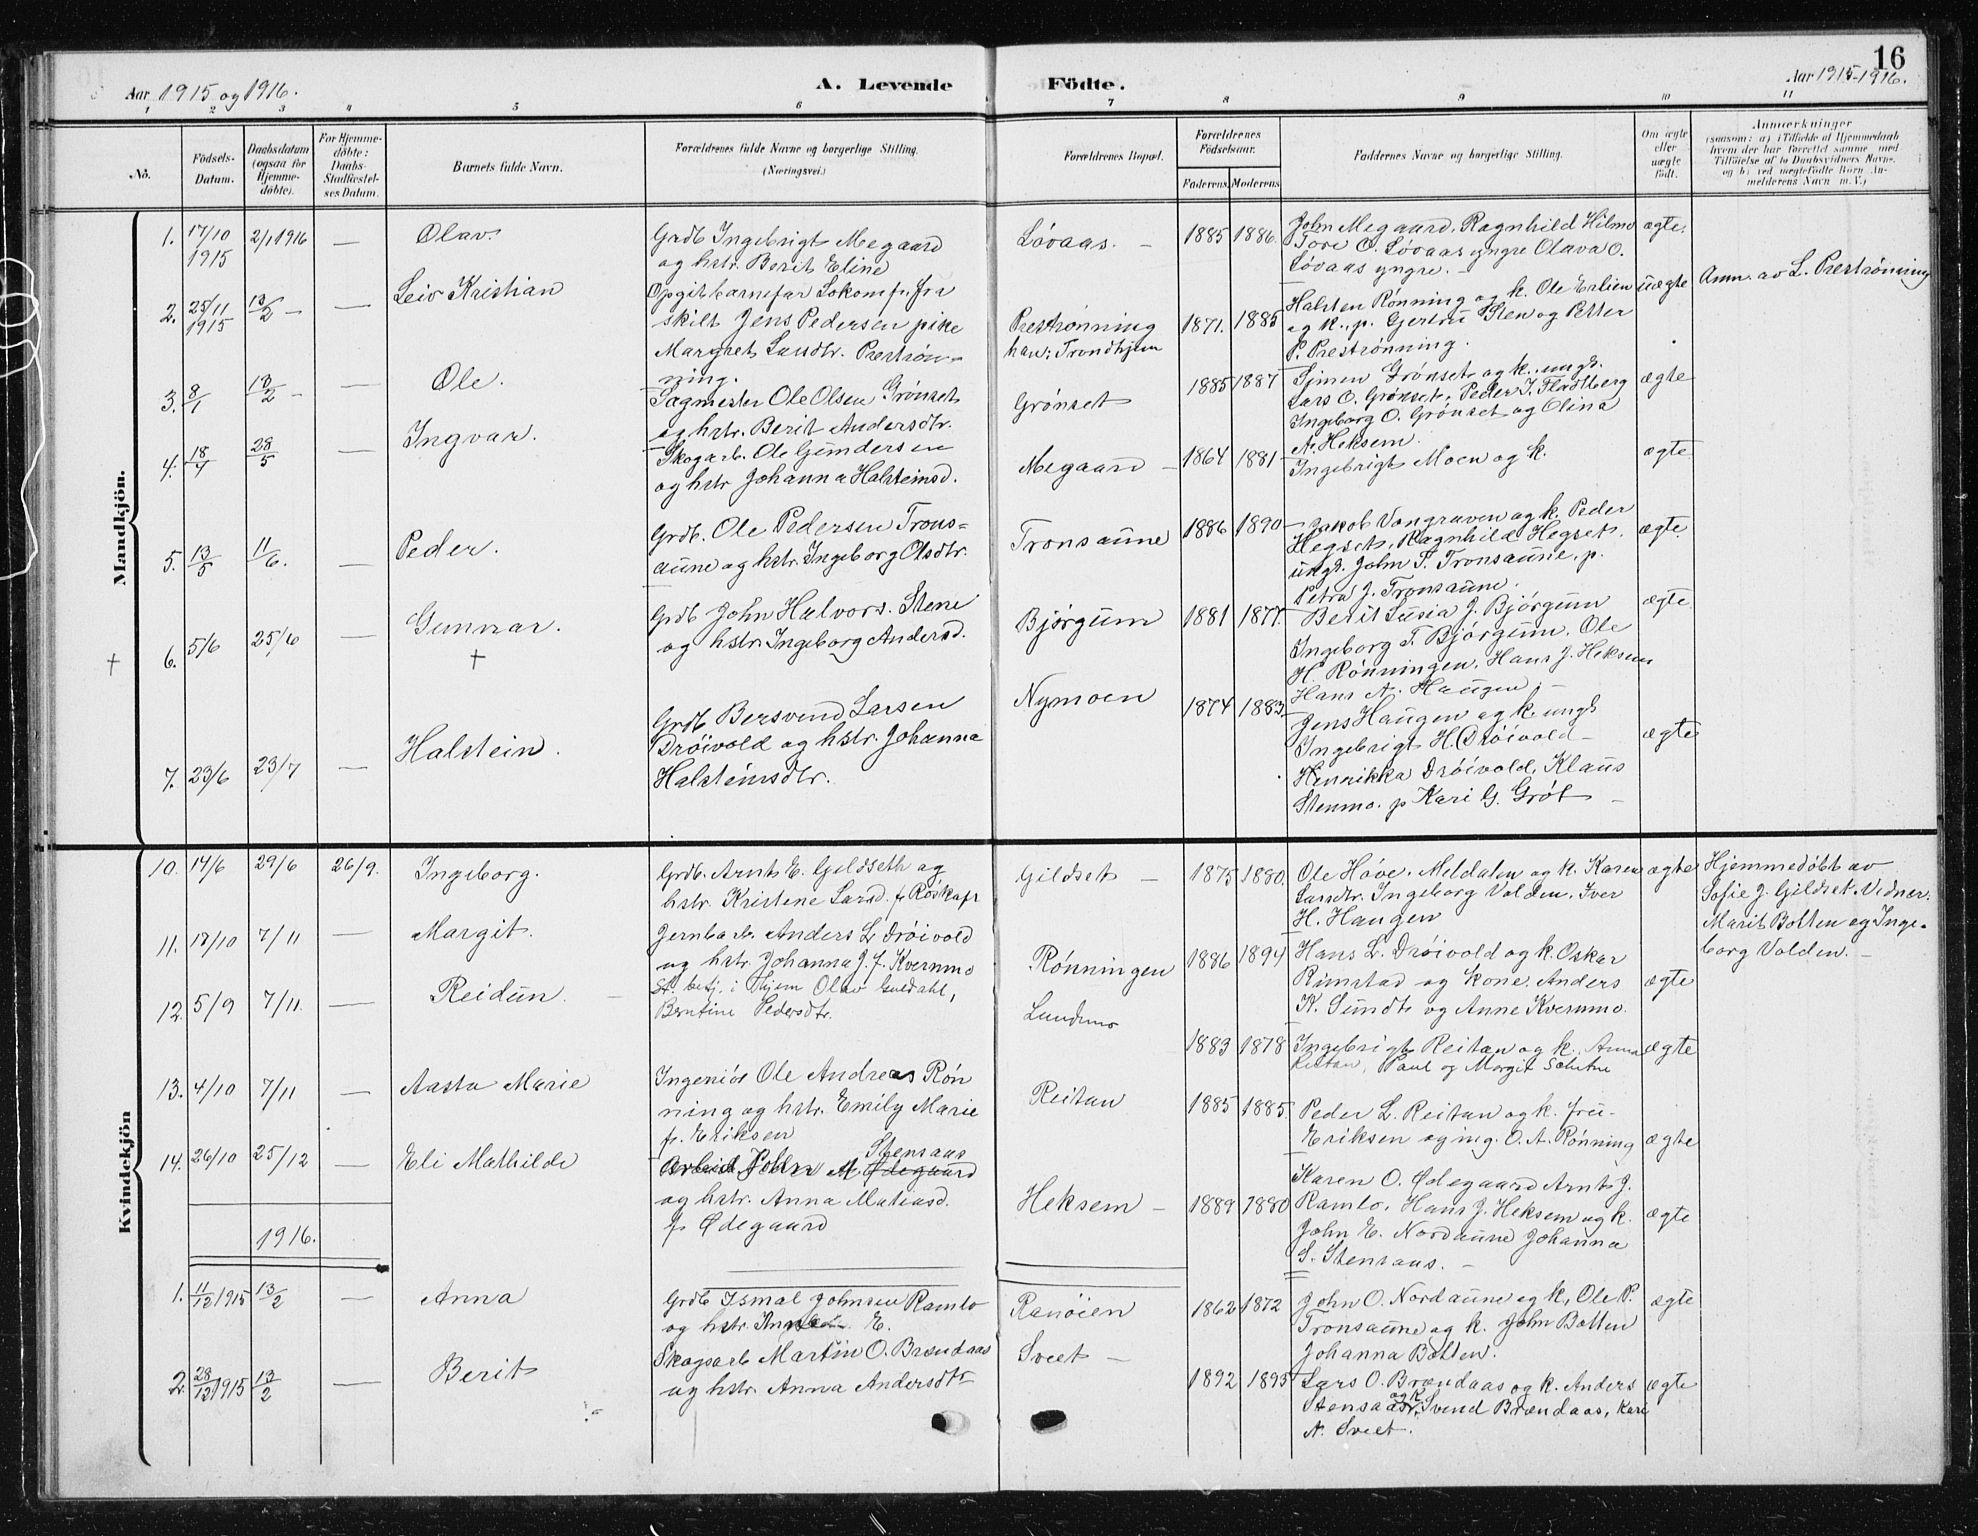 16
Aar 1915 og 1916.
A. Levende
Födte.
Aar 1915-1916.
1 2 3 4 5 6 7 8 9 10 11
No.
Födsels-
Datum.
Daabsdatum
(ogsaa for
Hjemme-
döbte).
For Hjemme-
döbte:
Daabs-
Stadfæstel-
ses Datum.
Barnets fulde Navn.
Forældrenes fulde Navne og borgerlige Stilling.
(Næringsvei.)
Forældrenes Bopæl.
Forældrenes
Födselsaar.
Faderens. Moderens.
Faddernes Navne og borgerlige Stilling.
Om ægte
eller
uægte
födt.
Anmærkninger
(saasom: a) i Tilfælde af Hjemmedaab
hvem der har forrettet samme med
Tilföielse af to Daabsvidners Navne.
og b) ved uægtefödte Börn An-
melderens Navn m. V.)
Mandkjön.
1. 17/10 1915 2/1 1916 — Olav.
Grdb Ingebrigt Megaard
og hstr. Berit Eline
Løvaas. — 1885 1886.
John Megaard, Ragnhild Hilmo
Tore O. Løvaas yngre Olava O.
Løvaas yngre. —
ægte.
2. 25/11 1915 13/2 — — Leiv Kristian
Opgit barnefar Lokomf. fra
skilt Jens Pedersen pike
Margret Larsdtr. Prestrøn-
ning.
Prestrønning
han: Trondhjem
1871. 1885
Halsten Rønning og k. Ole Erlien
og k., p. Gjertru Sten og Petter
P. Prestrønning.
uægte
Anm. av L. Prestrønning
3. 8/1 13/2 — — Ole.
Sagmester Ole Olsen Grønset
og hstr. Berit Andersdtr.
Grønset
1885 1887
Simen Grønset og k. ungk.
Lars O. Grønset, Peder J. Fladtberg
Ingeborg O. Grønset og Olina
A. Heksem.
ægte
4. 18/4 28/5 — Ingvar.
Skogarb. Ole Gundersen
og hstr Johanna Halsteinsd.
Megaard —
1864 1881
Ingebrigt Moen og k.
ægte
5. 13/5 11/6. — Peder.
Grdb. Ole Pedersen Trons=
aune og hstr. Ingeborg Olsdtr.
Tronsaune
1886 1890
Jakob Vongraven og k. Peder
Hegset, Ragnhild Hegset,
ungk. John T. Tronsaune, p.
Petra J. Tronsaune.
ægte.
† 6. 5/6 25/6 — Gunnar.
†
Grdb John Halvors. Stene
og hstr. Ingeborg Andersd.
Bjørgum
1881 1877.
Berit Lusia J. Bjørgum
Ingeborg T. Bjørgum, Ole
H. Rønningen, Hans J. Heksem
Hans A. Haugen. —
ægte
7. 23/6 23/7 — Halstein.
Grdb Bersvend Larsen
Drøivold og hstr. Johanna
Halsteinsdtr.
Nymoen
1874 1883.
Jens Haugen og k. ungk
Ingebrigt H. Drøivold —
Henrikka Drøivold, Klaus
Stenmo. p Kari G. Grøt —
ægte
Kvindekjön
10. 14/6 29/6 26/9. Ingeborg.
Grdb. Arnt E. Gildseth og
hstr. Kristene Larsd. f. Røskaft
Gildset —
1875 1880.
Ole Høve, Meldalen og k. Karen
Larsdtr. Ingeborg Volden, Iver
H. Haugen
ægte
Hjemmedøbt av
Sofie J. Gildset. Vidner:
Marit Bolten og Inge-
borg Volden. —
11. 18/10 7/11 — Margit.
Jernba. A. Anders L Drøivold
og hstr. Johanna J. f. Kvernmo
Rønningen
1886 1894
Hans L. Drøivold og k. Oskar
Rimstad og Kone. Anders
K. Sundt og Anne Kvernmo.
ægte
12. 5/9 7/11. — Reidun. —
St. betj. i Thjem Olav Guldahl,
Berntine Pedersdtr.
Lundmo
1883 1878
Ingebrigt Reitan og k. Anna
Reitan, Paul og Margit
ægte
13. 4/10 7/11 — Aasta Marie
Ingeniør Ole Andreas Røn
ning og hstr. Emily Marie
f. Eriksen
Reitan
1885 1885.
Peder L. Reitan og k. fru-
Eriksen og ing. O. A. Rønning
ægte
14. 26/10 25/12 — Eli Mathilde
Stensaas
Arbeid. John M. Ødegaard
og hstr. Anna Matiasd.
f. Ødegaard
Heksem —
1889 1880
Karen O. Ødegaard Arnt J.
Ramlo, Hans J. Heksem og k.
John E. Nordaune Johanna
S. Stensaas. —
ægte
1916.
1. 11/12 1915 13/2 — Anna
Grdb Ismal Johnsen Ramlo
og hstr. E.
Ranøien
1862 1872
John O. Nordaune og k, Ole P.
Tronsaune og k. John Bolten
Johanna Bolten.
ægte
2. 28/12 1915 13/2 — Berit
Skogsarb Martin O. Brændaas
og hstr. Anna Andersdtr
Sveet —
1892 1895
Lars O. Brændaas og k. Anders
og k.
Stensaas, Svend Brændaas, Kari
A. Sveet.
ægte